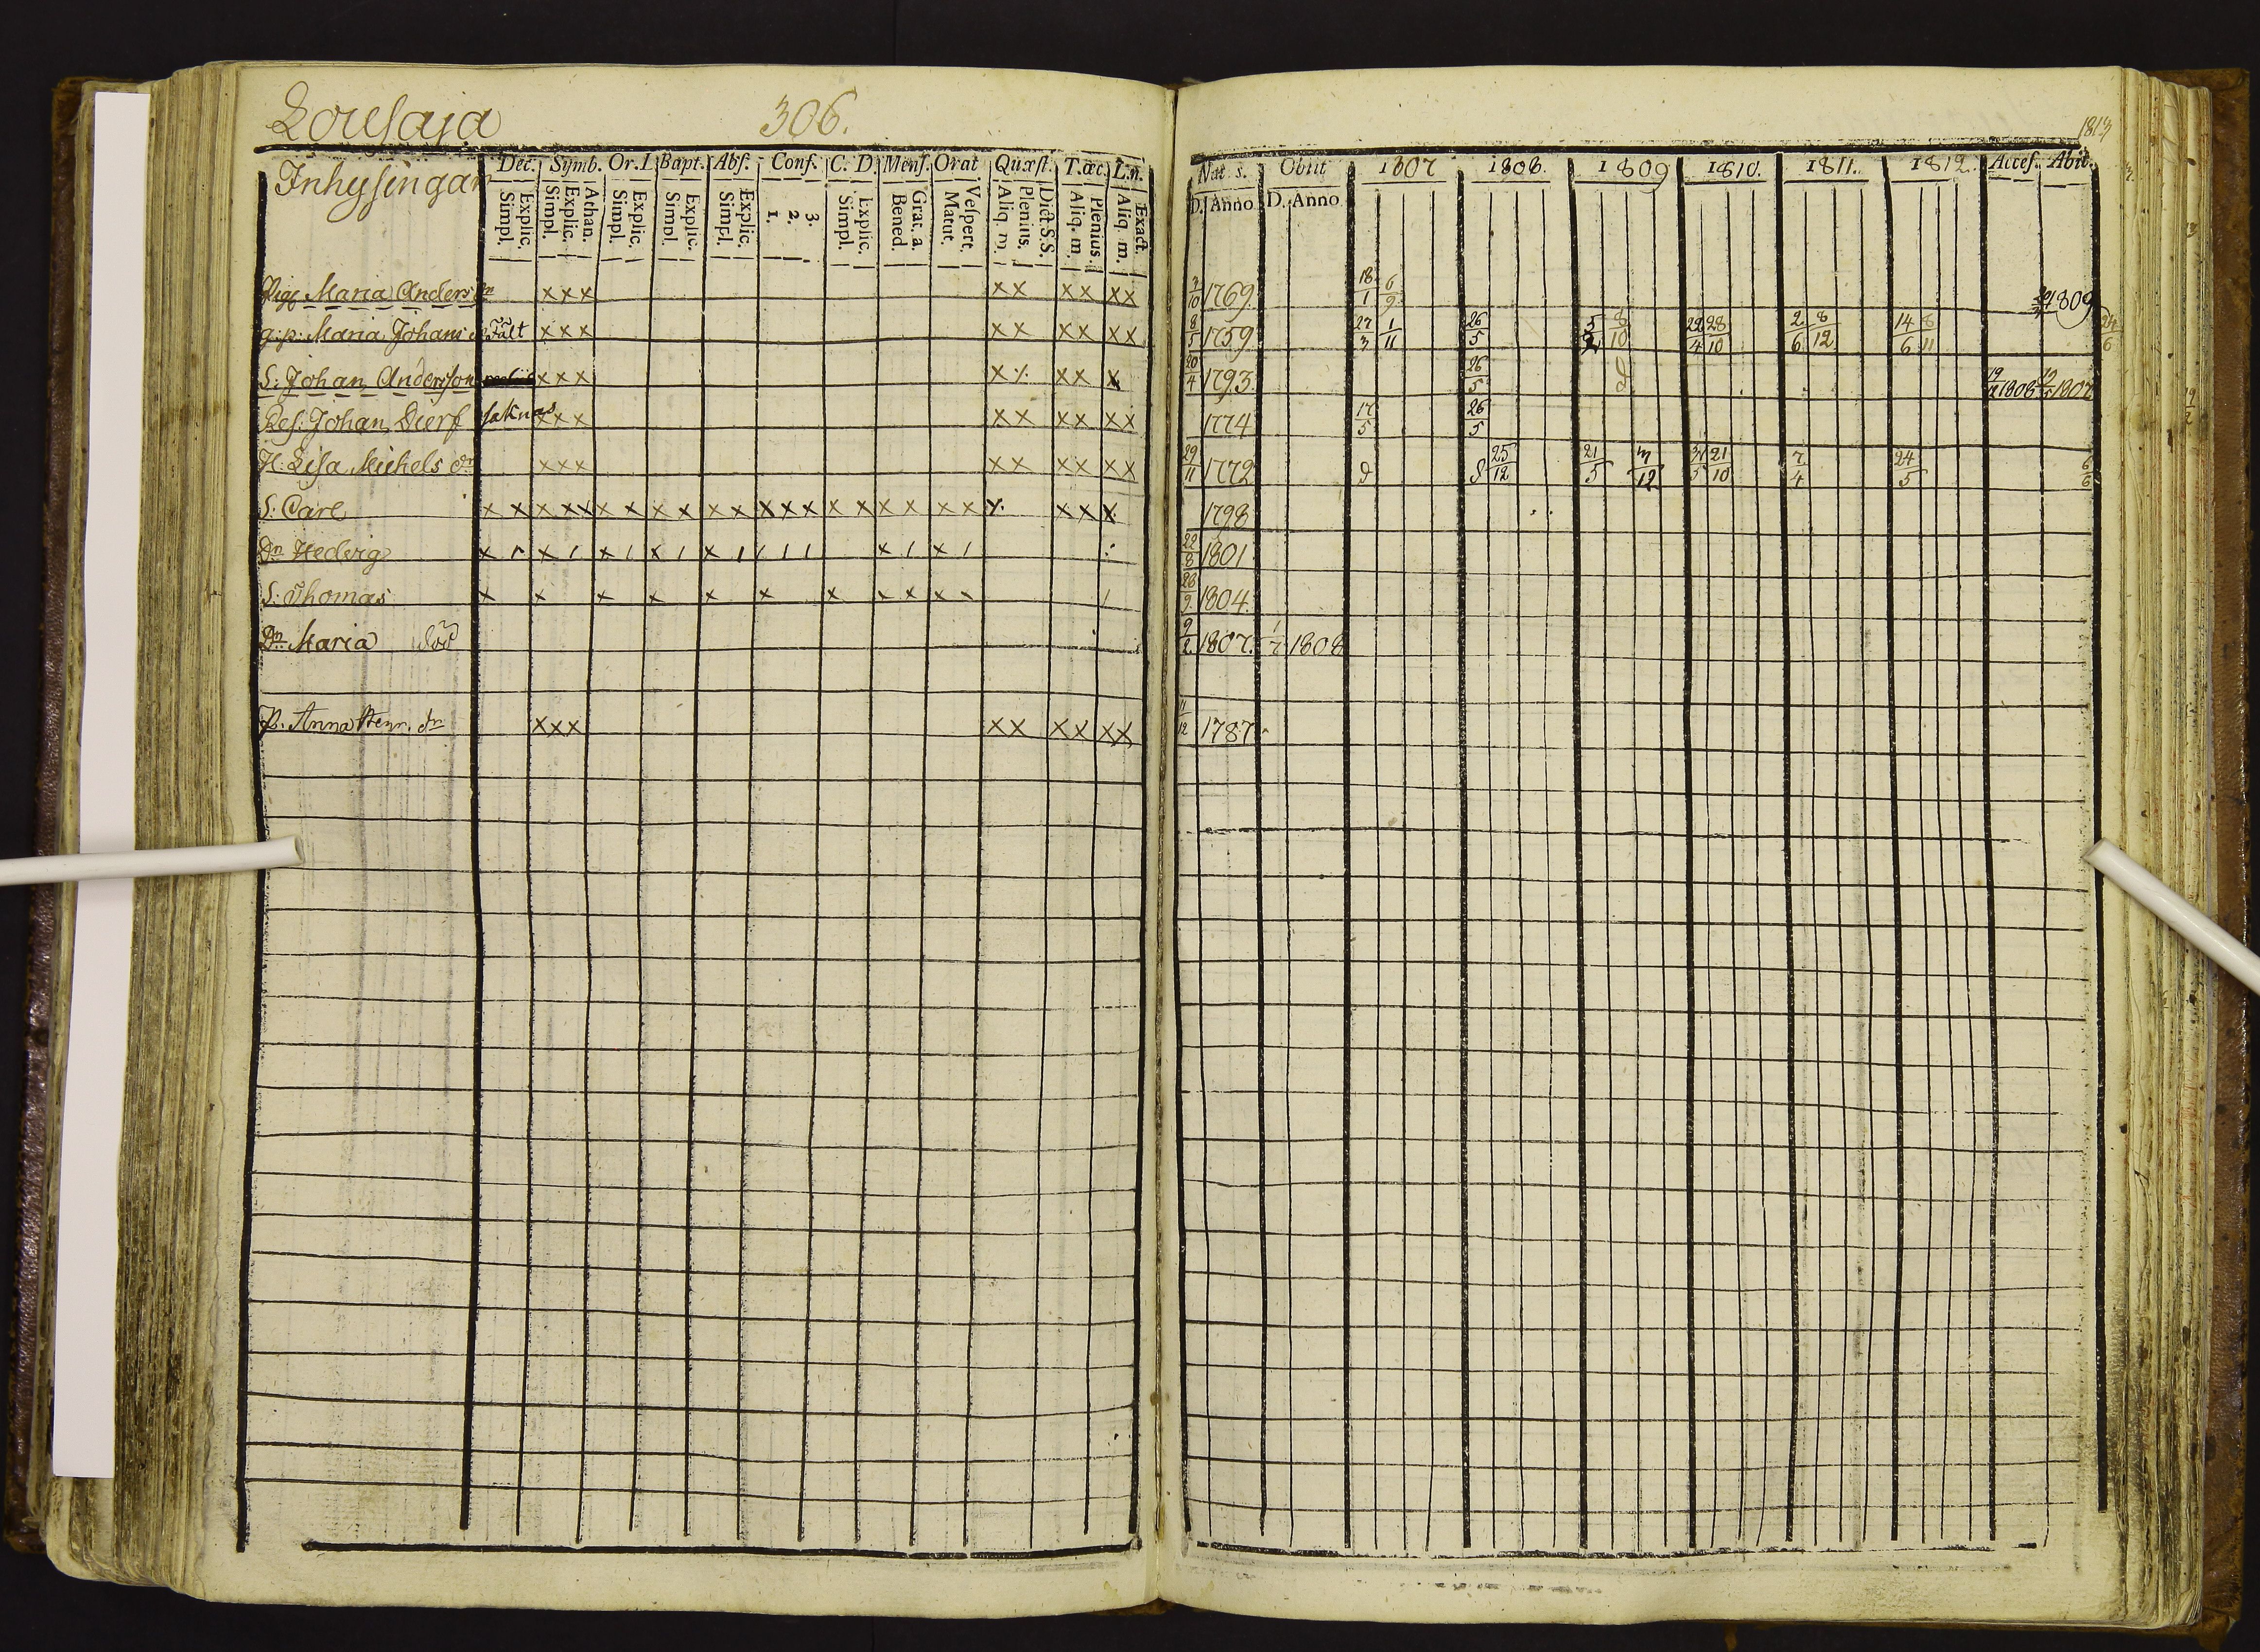 306.
Inhysingar
Dec. Symb. Or. Bapt. Abs. Conf. C. D. Mens. Orat Quæst. T. œc. L. n.
Explic. Simpl. Athan. Explic. Simpl. Explic. Simpl. Explic. Simpl. Explic. Simpl. 3. 2. 1. Explic. Simpl. Grat. a. Bened. Vespert. Matut. Dict. S.S. Plenius. Aliq. m. Plenius Aliq. m Exact. Aliq. m.
Maria Anders dn xxx xx xx xx
Maria Johans Fält xxx xx xx xx
S: Johan Andersson xxx xx x
Johan saknas xxx xx xx xx
H: Lisa Michels dn xxx xx xx xx
S: Carl x x x x x x x x x x x x x x x x x x x x x x x x x
Dn Hedvig
S: Thomas x x x x x x x x x x x
Dn Maria död
P. Anna Henr. dn xxx xx xx xx
1813
Obiit 1807 1808. 1809 1810. 1811. 1812. Acces. Abit.
D. Anno D. Anno
3/10 1769. 18/1 6/9 1809
8/5 1759 27/3 1/11 26/5 8/10 22/4 28/10 2/6 8/12 14/6 8/11 24/6
20/4 1793 26/5 1808 1807
1774 17/5 26/5
29/11 1772 25/12 21/5 21/10 7/4 24/5 6/6
1798
22/8 1801
28/9 1804.
9/2 1807. 1/7 1808
11/12 1787.